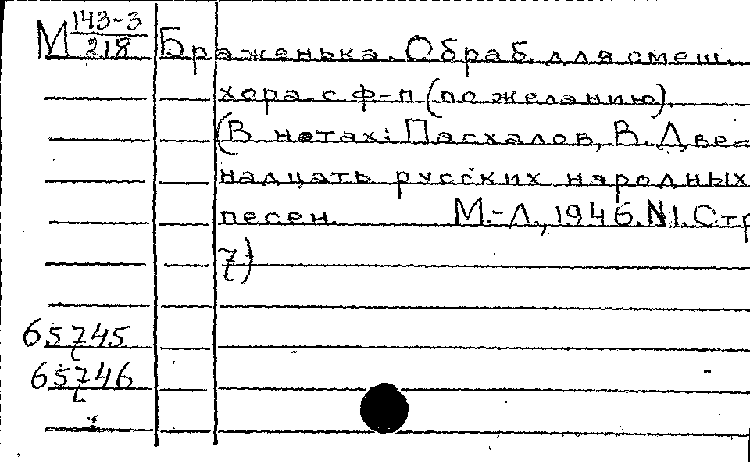 М 143-3/218 Браженька. Обраб. для смеш.
хора с ф-п (по желанию).
(В нотах: Пасхалов, В. Две-
надцать русских народных
песен. М.-Л., 1946. №1. Стр
7)
65745
65746